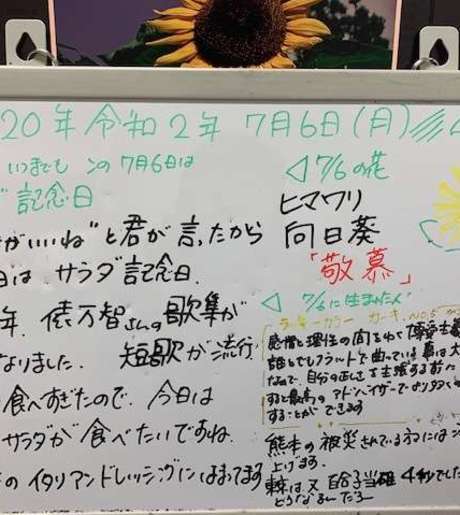 20年 令和2年 7月6日(月)
いつまでも ンの7月6日は
記念日
がいいね”と君が言ったから
日は サラダ記念日.
年. 俵万智さんの歌集が
なりました. 短歌が流行
食べすぎたので、今日は
サラダが食べたいですね.
の イタリアンドレッシングにはまってます
◁ 7/6の花
ヒマワリ
向日葵
「敬慕」
◁ 7/6に生まれた
ラッキーカラー カーキ. NO.5
感情と理性の間をゆく 博愛主義
誰とでもフラットで
なので、自分の正しさを主張する前に
すると最高の アドバイザーで
することができます
熊本の被災されている方には
上げます.
東京は又 百合子当確 4秒でした
どうなるんだろー